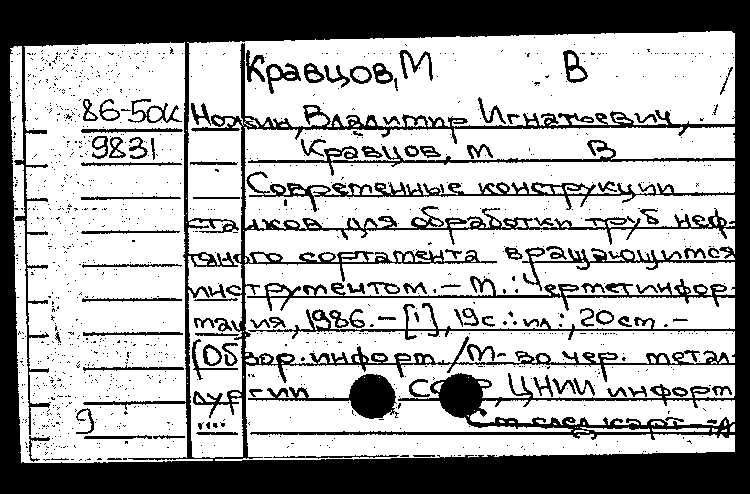 Кравцов, М В
86-50к Ножкин, Владимир Игнатьевич,
9831 Кравцов, М В
Современные конструкции
станков для обработки труб неф-
тяного сортамента вращающимся
инструментом. - М. : Черметинфор-
мация, 1986. - [1], 19 с. : ил. ; 20 см. -
(Обзор. информ. / М-во чер. метал-
лургии СССР, ЦНИИ информ
9 .... См след карт-